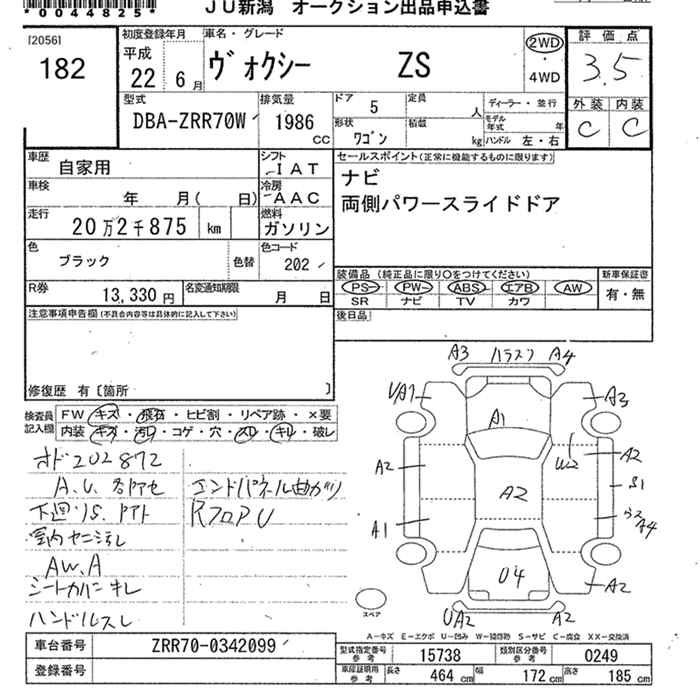 *0044825*
JU新潟 オークション出品申込書
[2056]
182
初度登録年月
平成
22年 6月
車名・グレード
ヴォクシー ZS
2WD
・
4WD
評価点
3.5
外装 内装
C C
型式
DBA-ZRR70W
排気量
1986
CC
ドア
5
定員
人
形状
ワゴン
積載
kg
ディーラー・並行
モデル年式 年
ハンドル 左・右
車歴
自家用
シフト
IAT
車検
年 月( 日)
冷房
AAC
走行
20万2千875 km
燃料
ガソリン
色
ブラック
色替
色コード
202
R券
13,330円
名変通知期限
月 日
セールスポイント(正常に機能するものに限ります)
ナビ
両側パワースライドドア
装備品 (純正品に限り○をつけてください)
PS PW ABS エアB AW
SR ナビ TV カワ
新車保証書
有・無
後日品
注意事項申告欄(不具合内容等は具体的に記入して下さい)
修復歴 有〔箇所 〕
検査員記入欄
FW キズ・飛石・ヒビ割・リペア跡・×要
内装 キズ・汚れ・コゲ・穴・スレ・キレ・破レ
オド202872
A.U.各アセ
エンドパネル曲がり
下廻りS.アト
RフロアU
AW.A
シートカバーキレ
ハンドルスレ
A3 ハラスフ A4
UA1
A3
A1
A2
W2
A2
S1
A2
A1
A4
U4
A2
スペア
UA2
A2
A−キズ E−エクボ U−凹み W−補修跡 S−サビ C−腐食 XX−交換済
車台番号
ZRR70-0342099
登録番号
型式指定番号
参考
15738
類別区分番号
参考
0249
車庫証明用
参考
長さ
464 cm
幅
172 cm
高さ
185 cm